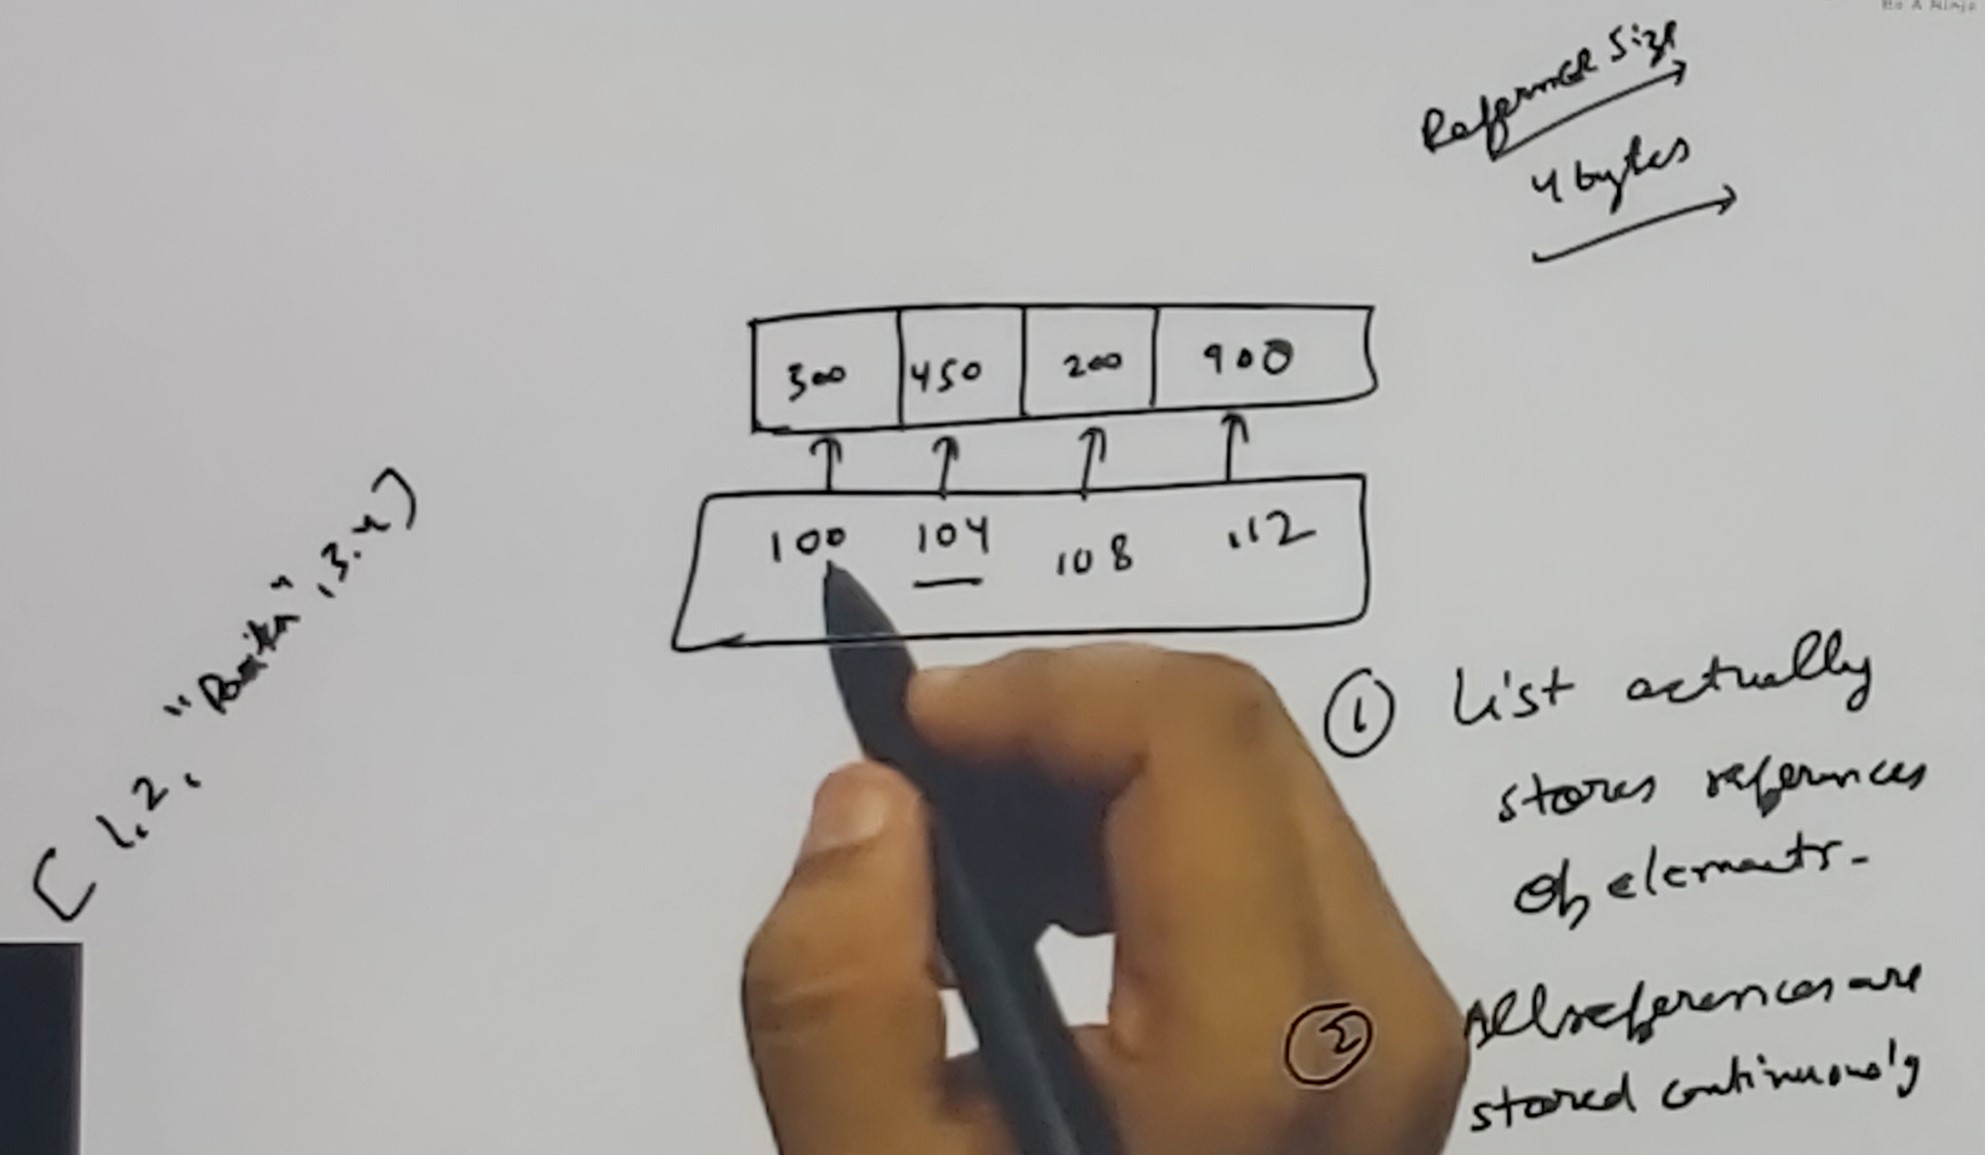 Be A Ninja
Reference Size
4 bytes
300 450 200 900
100 104 108 112
[1, 2, "Parikh", 3.4]
① List actually
stores references
of elements.
② All references are
stored continuously